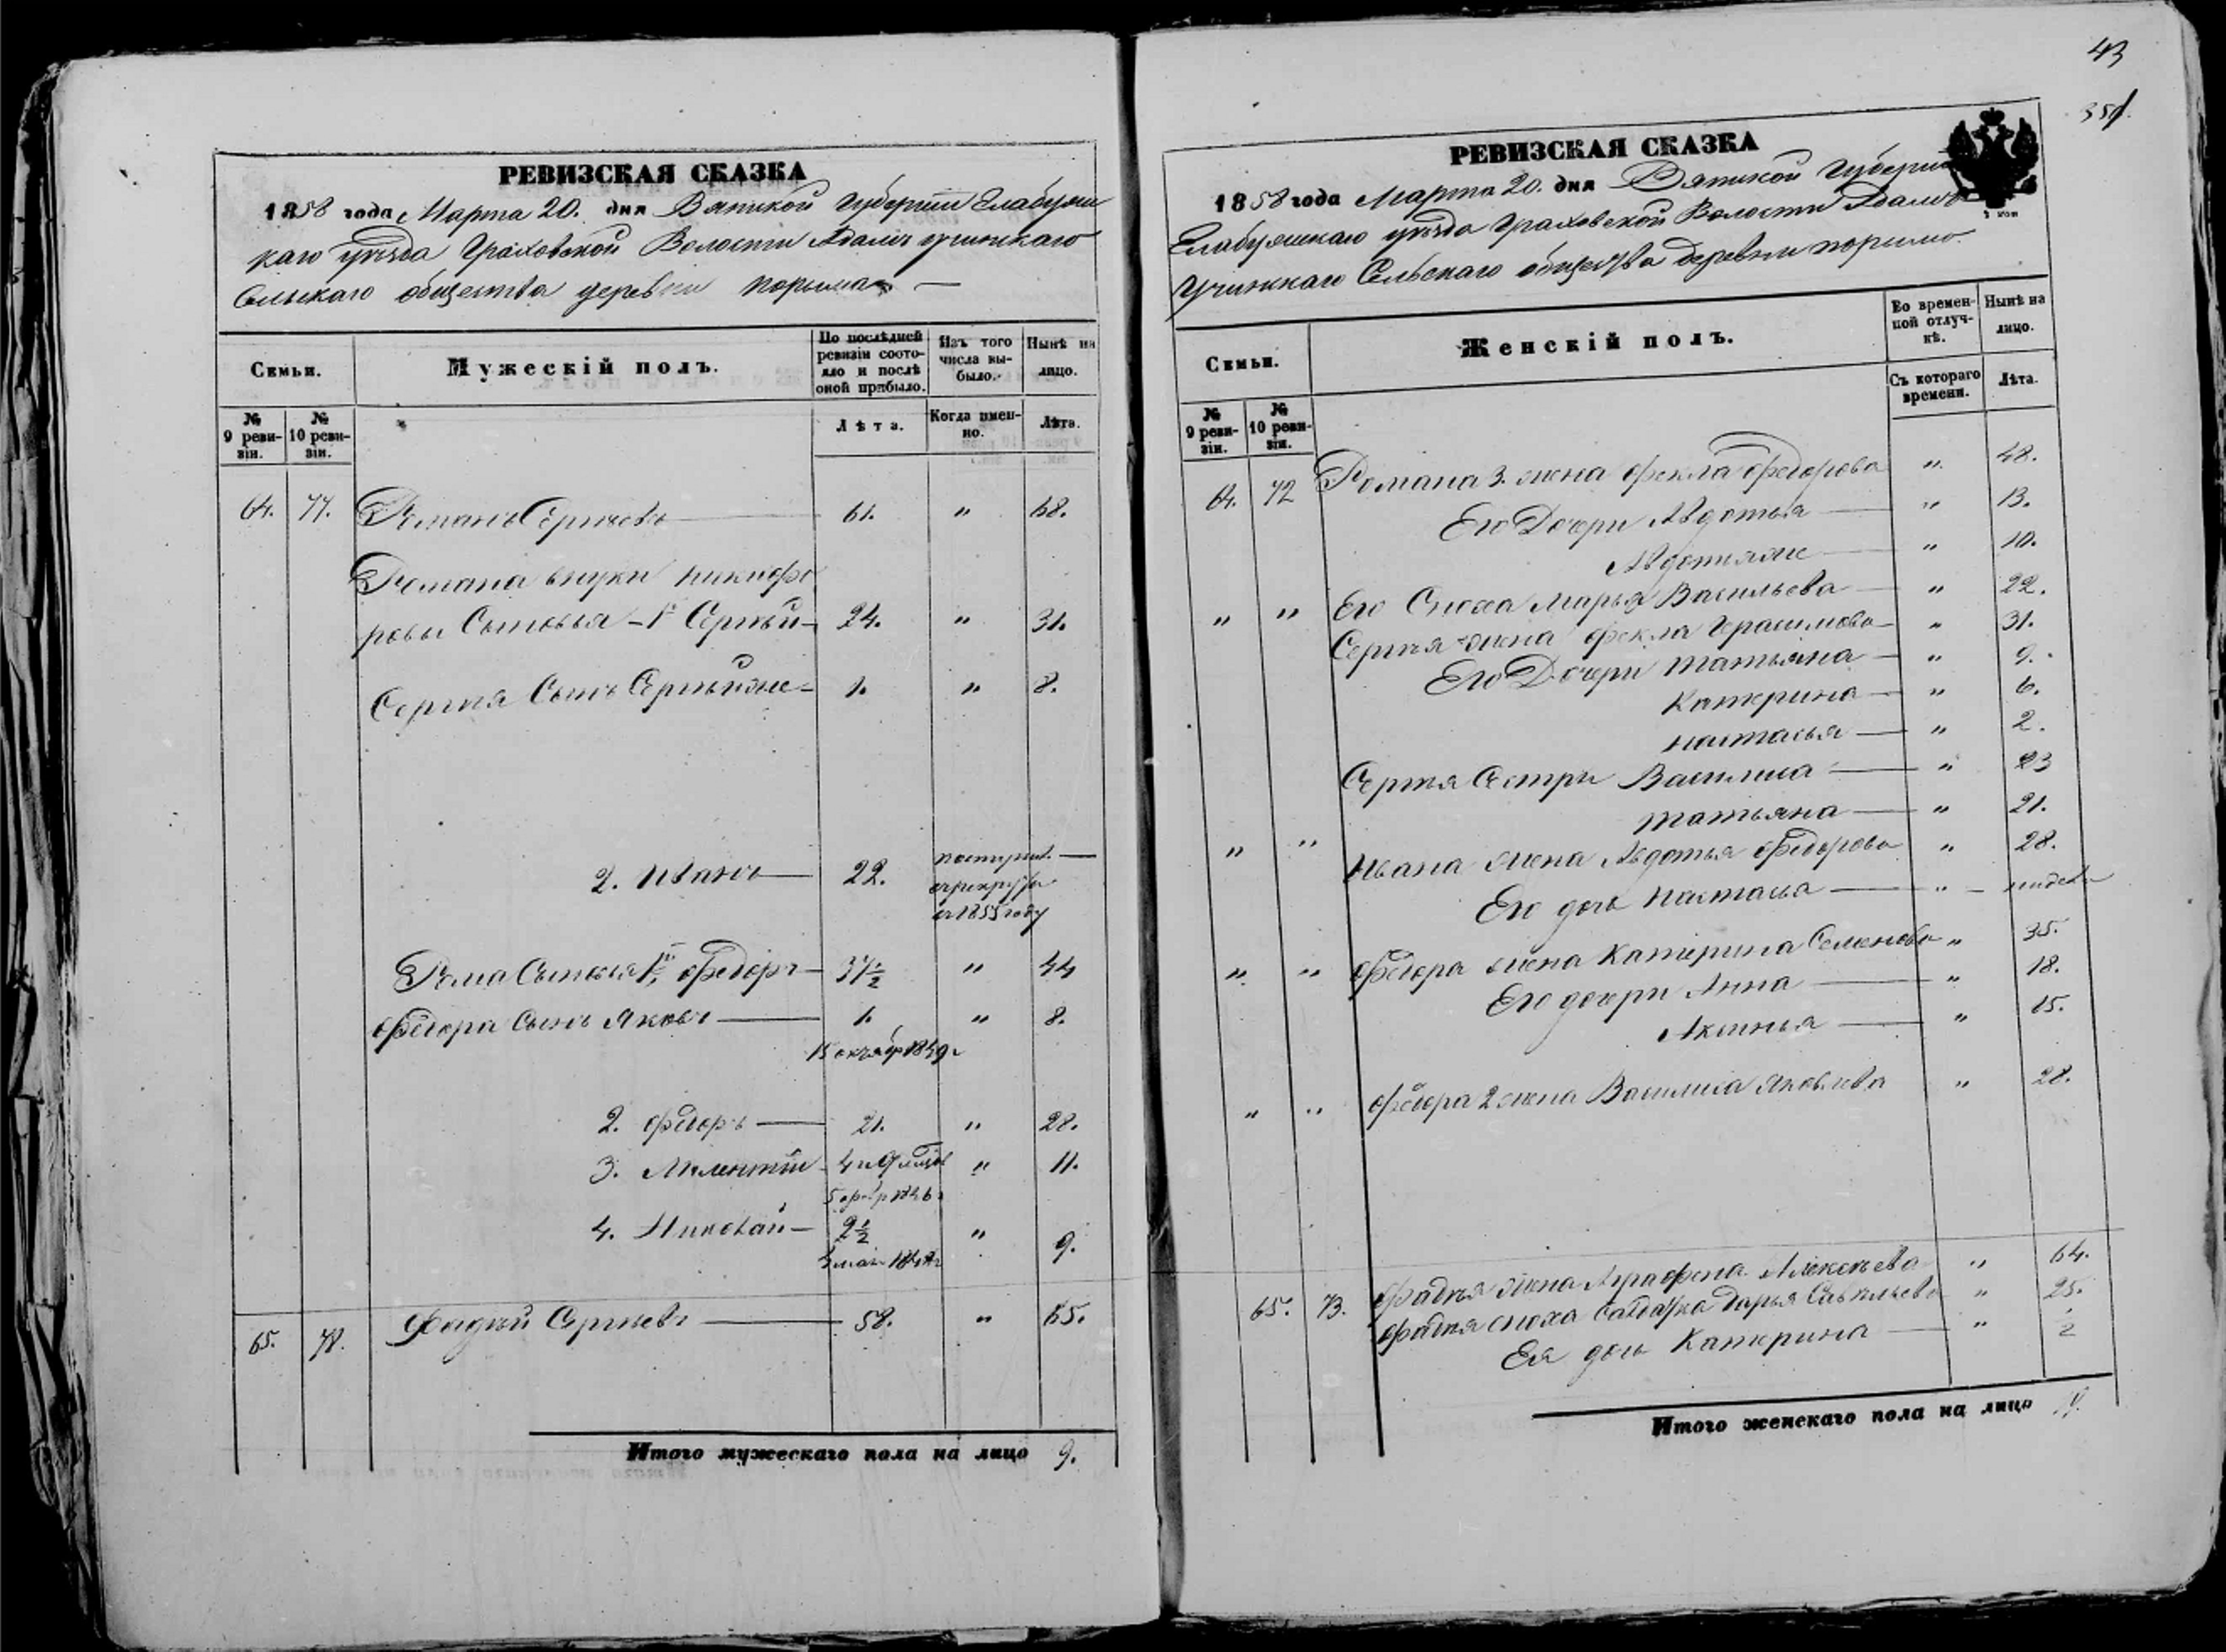 43
351.
РЕВИЗСКАЯ СКАЗКА
1858 года Марта 20. дня Вятской Губернии Елабужс
каго уѣзда Граховской Волости Адамъ учинскаго
Сельскаго общества деревни
Семьи.
Мужескій полъ.
По послѣдней ревизіи состояло и послѣ оной прибыло.
Изъ того числа выбыло.
Нынѣ на лицо.
№ 9 ревизіи.
№ 10 ревизіи.
Лѣта.
Когда именно.
Лѣта.
64. 77. Романъ Сергѣевъ 61. " 68.
Романа внуки Никифо
ровы Сыновья - 1й Сергѣй 24. " 31.
Сергѣя Сынъ Сергѣй же 1. " 8.
2. Иванъ 22. поступил.
в рекруты
в 1855 году
Рома Сыновья 1й Ѳедоръ 37½ " 44
Ѳедора Сынъ Яковъ 1. " 8.
15 октяб 1849 г
2. Ѳедоръ 21. " 28.
3. Мелентій 4 и 9 мцов " 11.
5 фев 1846 г
4. Николай 2½ " 9.
4 мая
65. 78. Фадѣй Сергѣевъ 58. " 65.
Итого мужескаго пола на лицо 9.
РЕВИЗСКАЯ СКАЗКА
1858 года Марта 20. дня Вятской Губерніи
Елабужскаго уѣзда Граховской Волости Адамъ
Учинскаго Сельскаго общества деревни
Семьи.
Женскій полъ.
Во временной отлучкѣ.
Нынѣ на лицо.
№ 9 ревизіи.
№ 10 ревизіи.
Съ котораго времени.
Лѣта.
64. 72 Романа 3. жена Фекла Ѳедорова " 48.
Его Дочери Авдотья " 13.
Авдотья же " 10.
" " Его Сноха Марья Васильева " 22.
Сергѣя жена Фекла Герасимова " 31.
Его Дочери Татьяна " 9.
Катерина " 6.
Настасья " 2.
Сергѣя Сестры Василиса " 23
Татьяна " 21.
" " Ивана жена Авдотья Ѳедорова " 28.
Его дочь Настасья "
" " Ѳедора жена Катерина Семенова " 35.
Его дочери Анна " 18.
Аксинья " 15.
" " Ѳедора 2 жена Василиса Яковлева " 28.
65. 73. Фадѣя жена Аграфена Алексѣева " 64.
Фадѣя сноха Салдатка Дарья Савельева " 25.
Ея дочь Катерина " ½
Итого женскаго пола на лицо